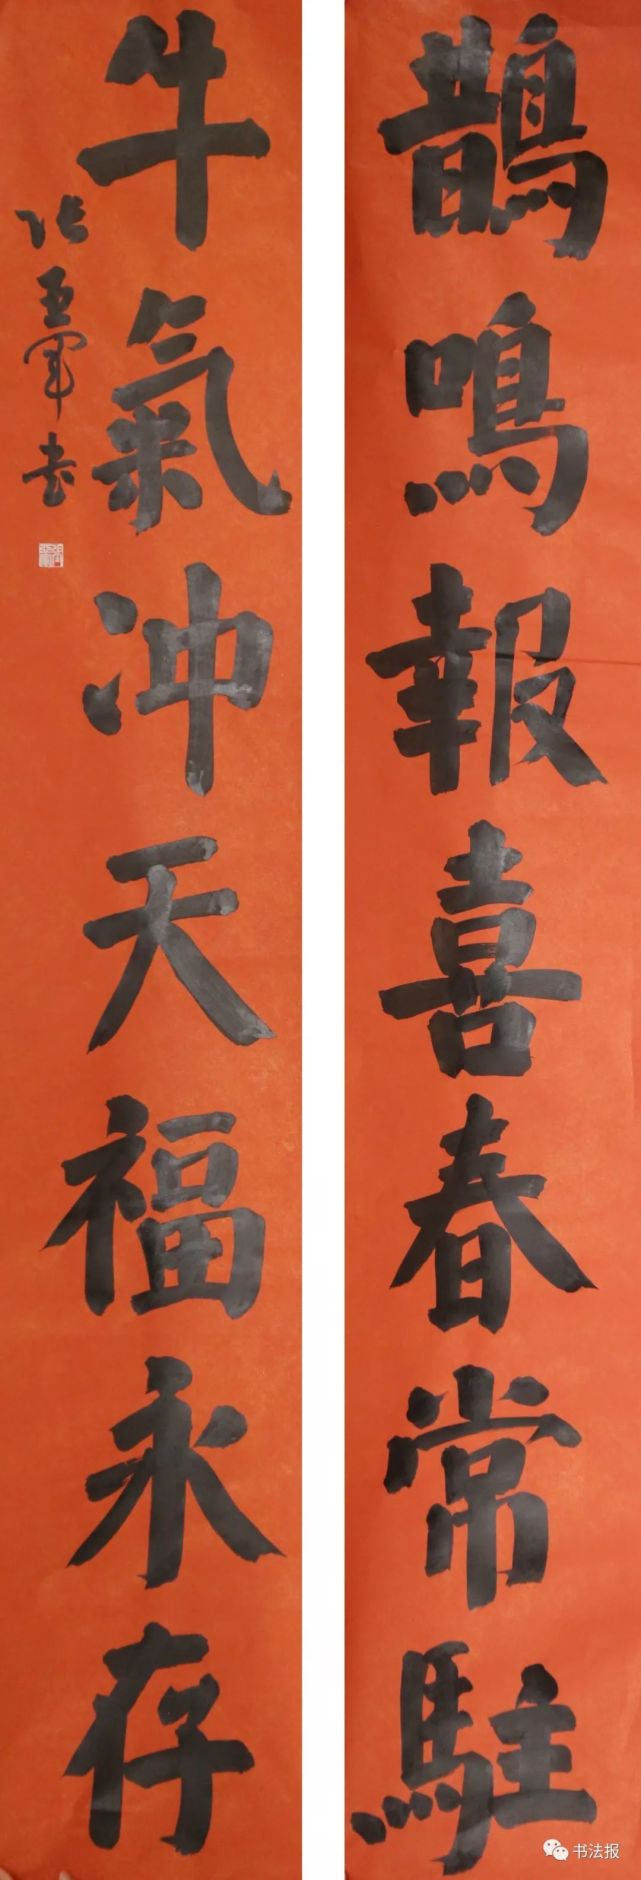 鵲鳴報喜春常駐
牛氣冲天福永存
张亚军书
书法报